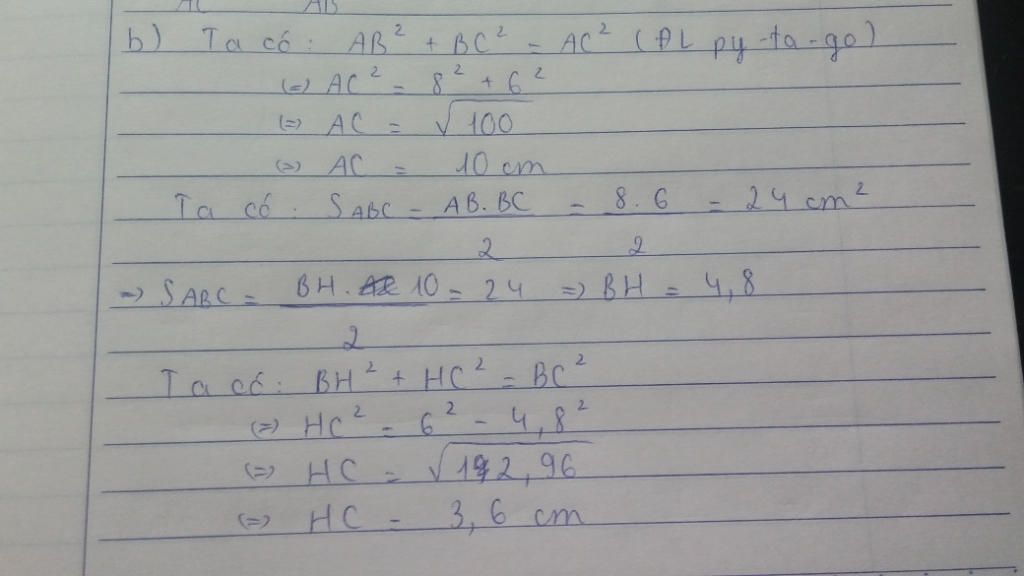 AC AB
b) Ta có: AB² + BC² = AC² (ĐL py-ta-go)
(=) AC² = 8² + 6²
(=) AC = √100
(=) AC = 10 cm
Ta có: SABC = AB.BC/2 = 8.6/2 = 24 cm²
=) SABC = BH.10/2 = 24 =) BH = 4,8
Ta có: BH² + HC² = BC²
(=) HC² = 6² - 4,8²
(=) HC = √12,96
(=) HC = 3,6 cm